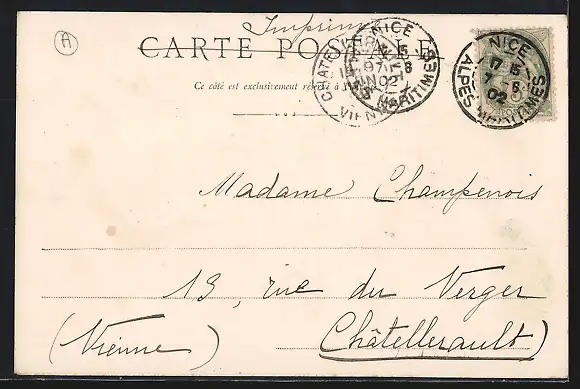 A
Imprimé
CARTE POSTALE
Ce côté est exclusivement réservé à
NICE
ALPES MARITIMES
NICE
17 15
7 6
02
ALPES MARITIMES
Madame Champenois
13, rue du Verger
(Vienne)
Châtellerault)